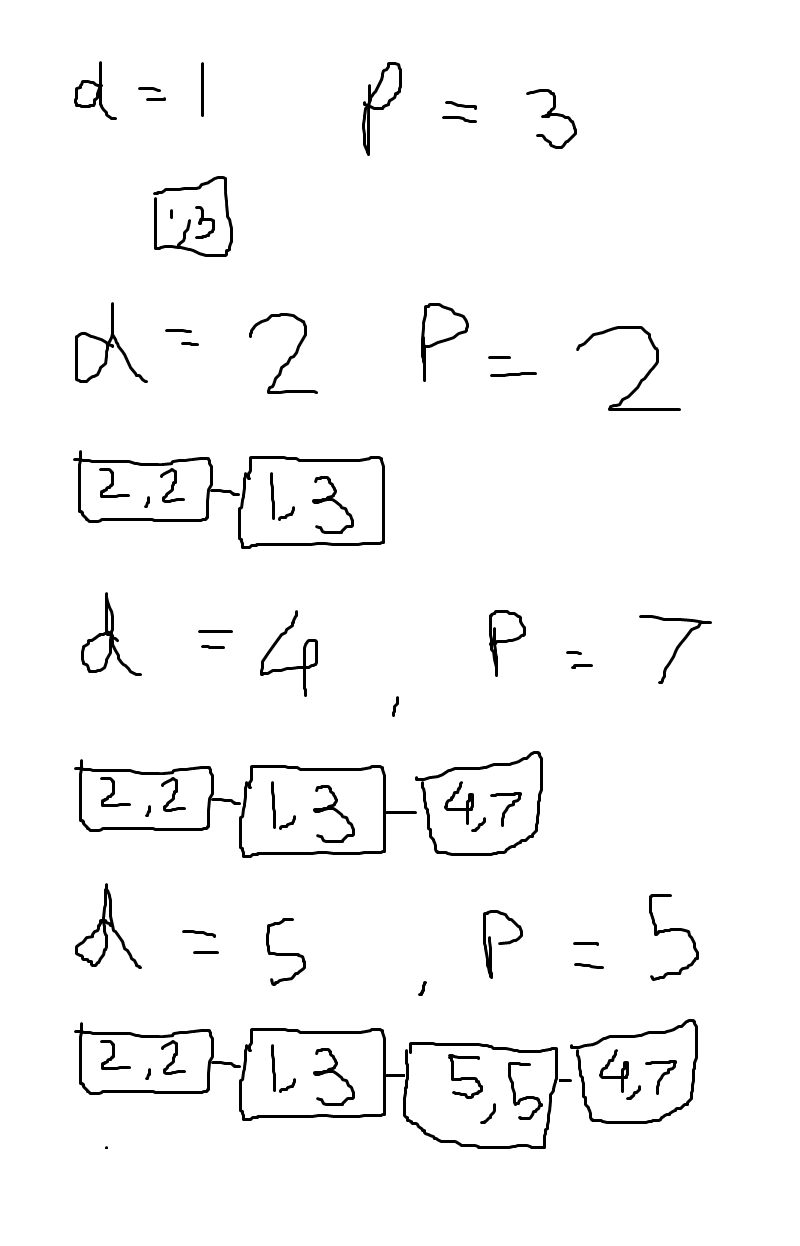 d = 1 P = 3
1,3
d = 2 P = 2
2,2 1,3
d = 4 , P = 7
2,2 1,3 4,7
d = 5 , P = 5
2,2 1,3 5,5 4,7